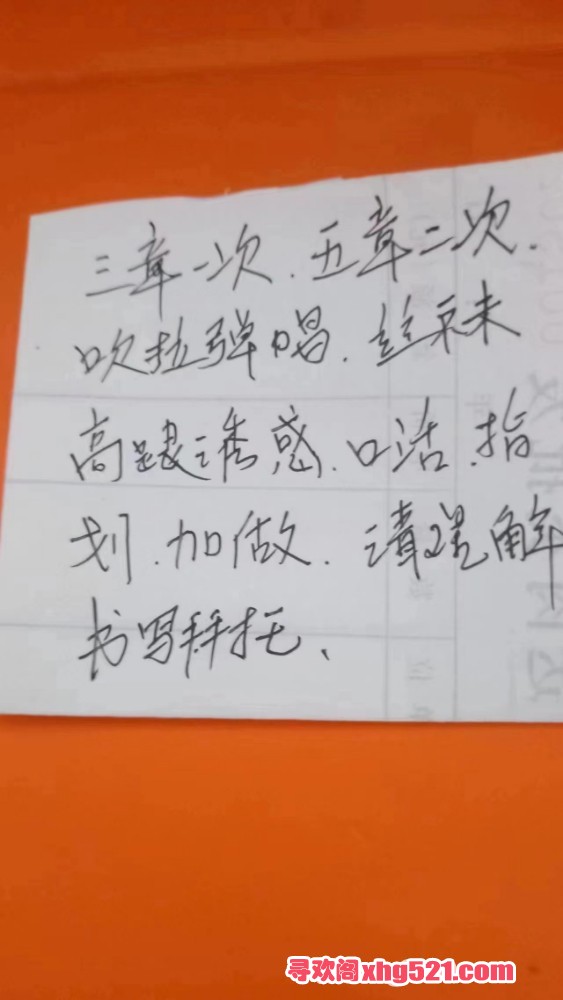 三章一次.五章二次.
吹拉弹唱.丝末
高跟诱惑.口活.指
划.加做.请理解
书写拜托、
寻欢阁xhg521.com